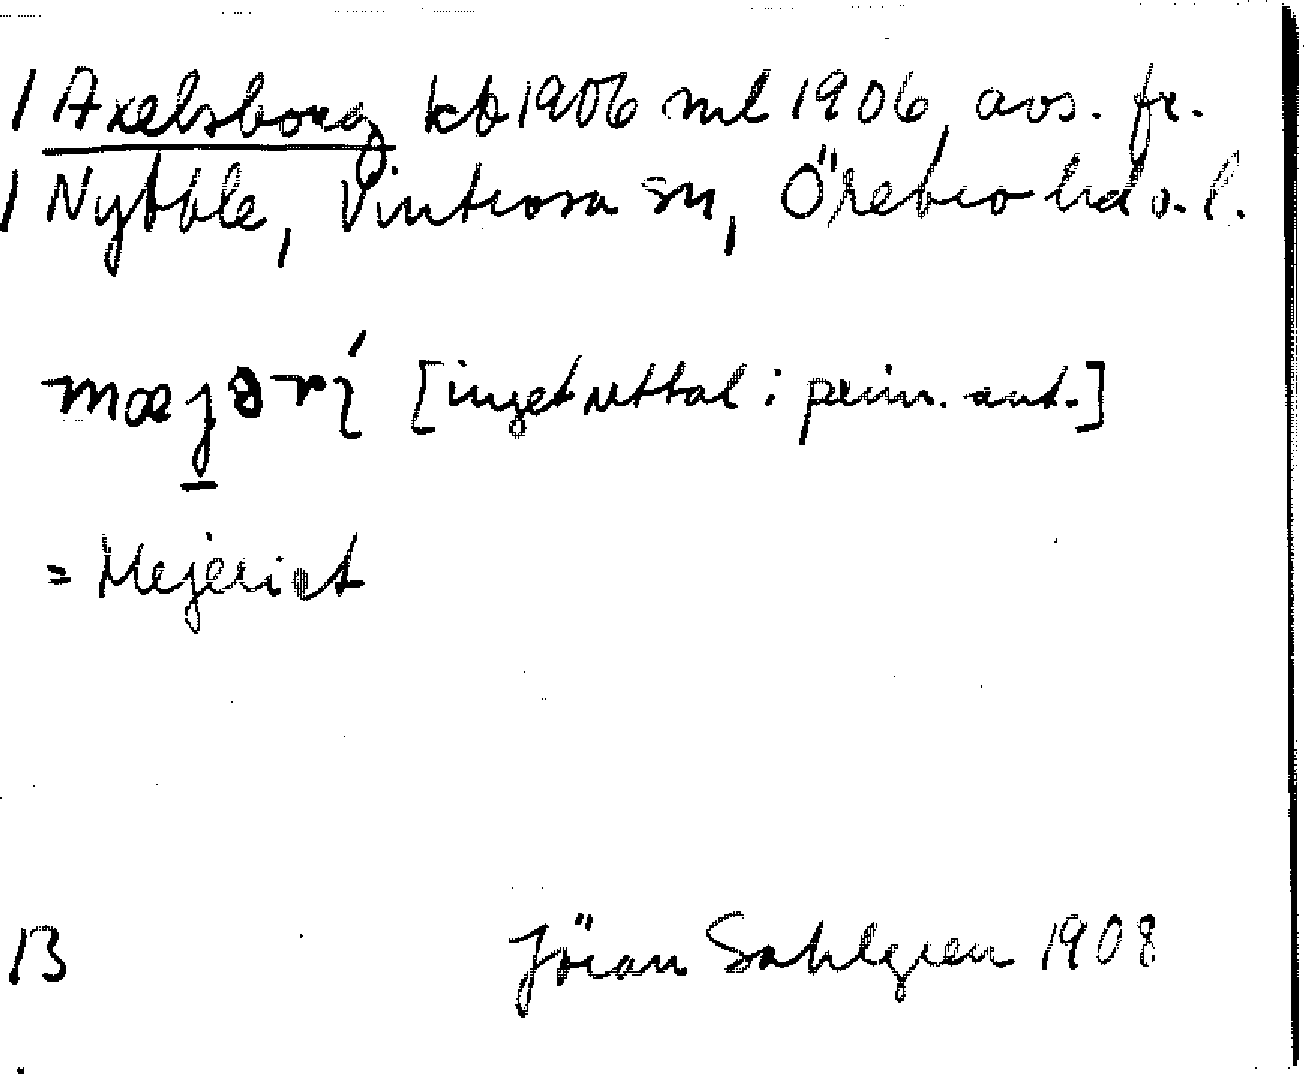 / Axelsborg kb 1906 ml 1906, avs. fr.
/ Nybble, Vintrosa sn, Örebro hd s. l.
mæjərí [inget uttal i prim. ant.]
= Mejeriet
B Jöran Sahlgren 1908